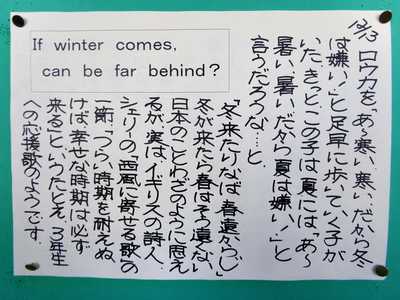 If winter comes,
can be far behind?
12/13
ロウカを「あ〜寒い、寒い、だから冬
は嫌い!」と足早に歩いていく子が
いた。きっとこの子は夏には、「あ〜
暑い、暑い、だから夏は嫌い!」と
言うだろうな…と
「冬来たりなば春遠からじ」
冬が来たら春はそう遠くない
日本のことわざのように思え
るが実は、イギリスの詩人、
シェリーの「西風に寄せる歌の
一節、「つらい時期を耐えぬ
けば幸せな時期は必ず
来る」というたとえ。3年生
への応援歌のようです。